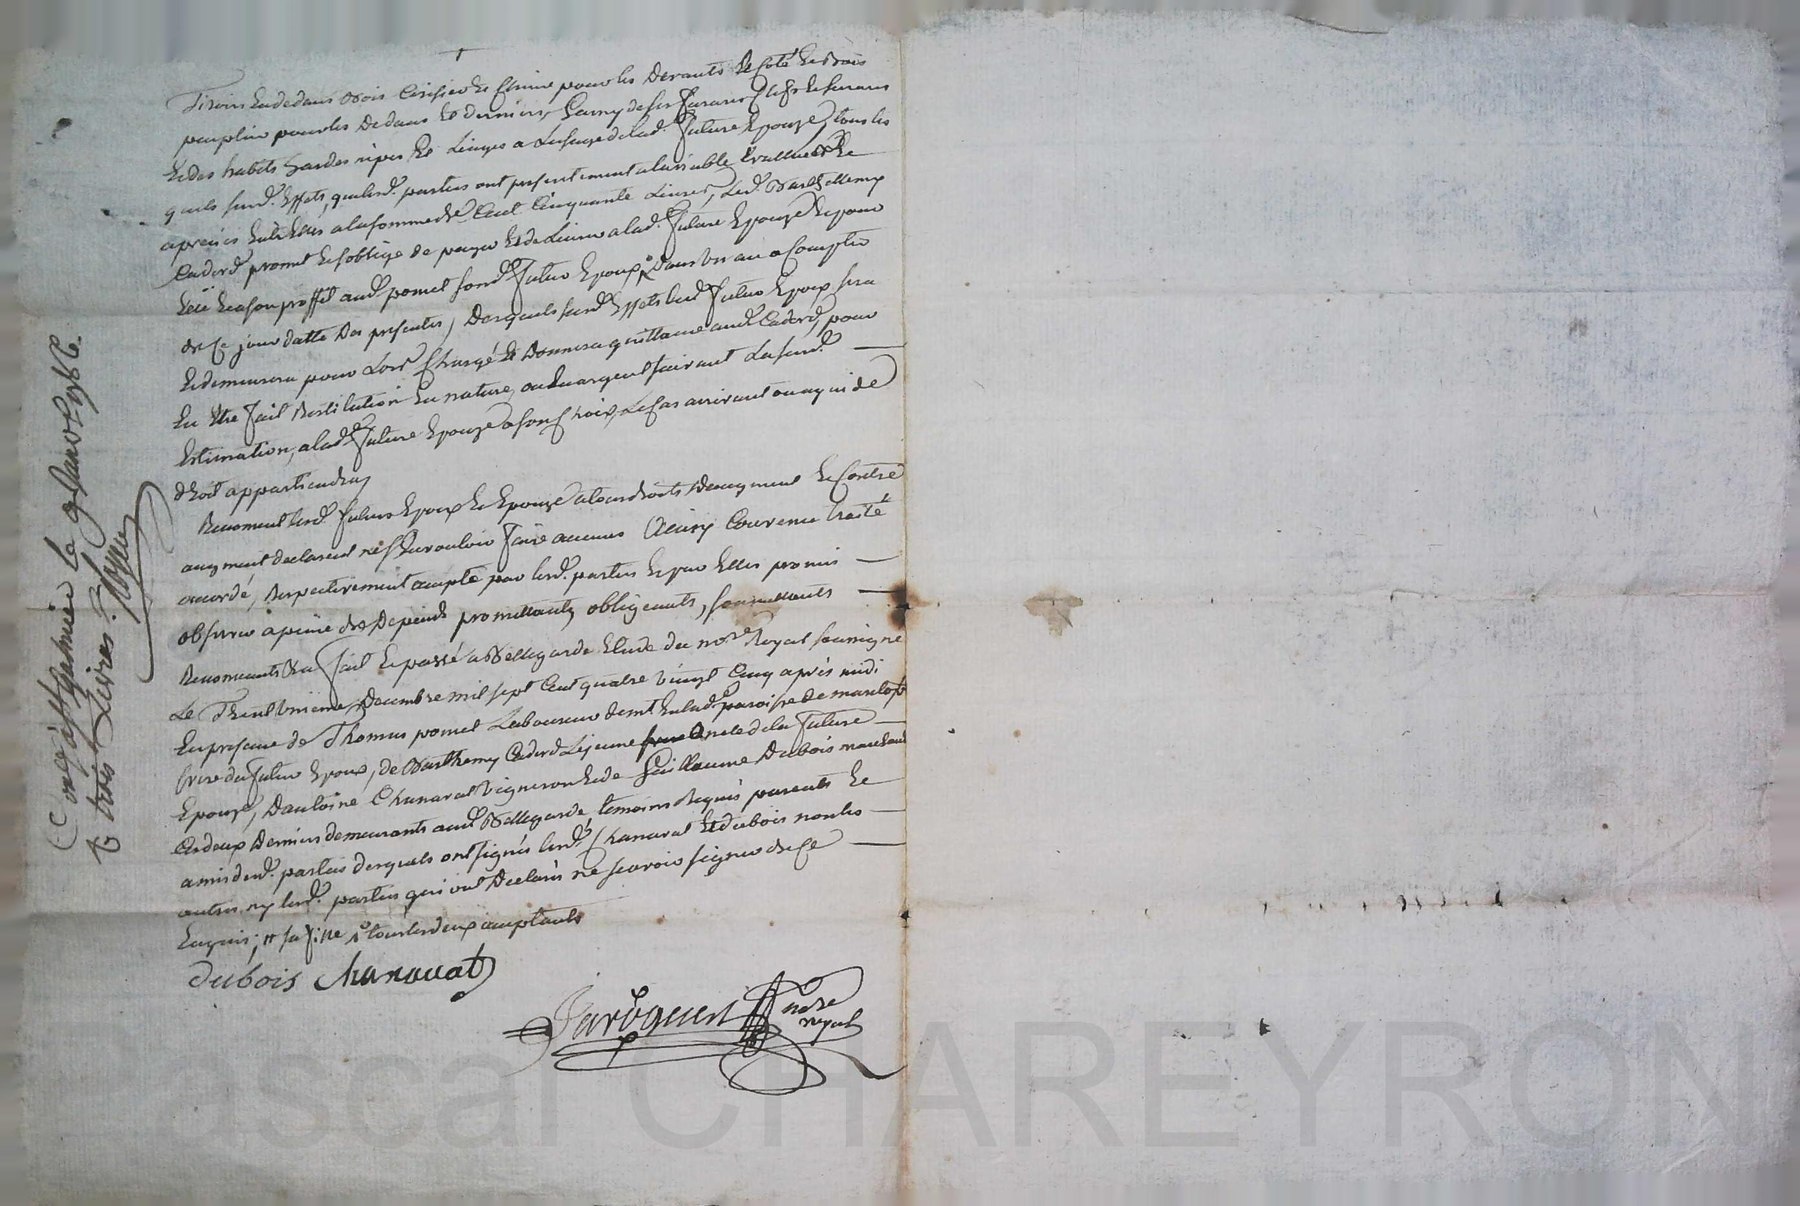 Tiroirs en dedans bois Cerisier et chaine pour les devants Le Coté en bois
peuplier pour les dedans et derniers, Garny de ses serrures clefs et ferrures
et des habits hardes nipes et Linges a Lusage de lad. future Epouze, tous les
quels susd. Effets, que lesd. parties ont presentement a lamiable Evallués et
apreciés Entr'Elles a la somme de Cent Cinquante Livres, Led. Barthellemy
Caderd promet et soblige de payer et de Livrer a lad. future Epouze et pour
Elle et a son proffit aud. pomet son d. futur Epoux dans un an a Compter
de Ce jour datte des presentes, desquels susd. Effets led. futur Epoux sera
et demeurera pour Lors Chargé Et Donnera quittance aud. Caderd, pour
En Etre fait Restitution En nature, ou En argent suivant La susd.
Estimation, a lad. future Epouze a son choix, Le Cas arrivant ou a qui de
droit appartiendra,
Renoncent lesd. futurs Epoux et Epouze a tous droits d'augment et Contre
augment declarent n'en Vouloir faire aucuns Ainsy Convenu traité
accordé, Respectivement accepté par lesd. parties Et par Elles promis
observer a peine de Depends promettants, obligeants, soumettants
Renonceants &a fait Et passé a Bellegarde Etude du nore Royal soussigné
Le Trent Unieme Decembre mil sept Cent quatre vingt Cinq après midi
En presence de Thomas pomet Laboureur demt En lad. paroisse de
frere du futur Epoux, de Barthemy Caderd Le jeune oncle de la future
Epouze, Dantoine Chanavat Vigneron Et de Guillaume Dubois marchand
Ces deux Derniers demeurants aud. Bellegarde, temoins Requis parents Et
amis desd. parties desquels ont signés lesd. Chanavat Et dubois non les
autres ny lesd. parties qui ont Declarés ne scavoir signer de Ce
Enquis; # sa fille tous les deux acceptants
dubois Chanavat
nore
royal
Controlé à St Galmier le 9 janvr 1786
R trois Livres.
Pascal CHAREYRON